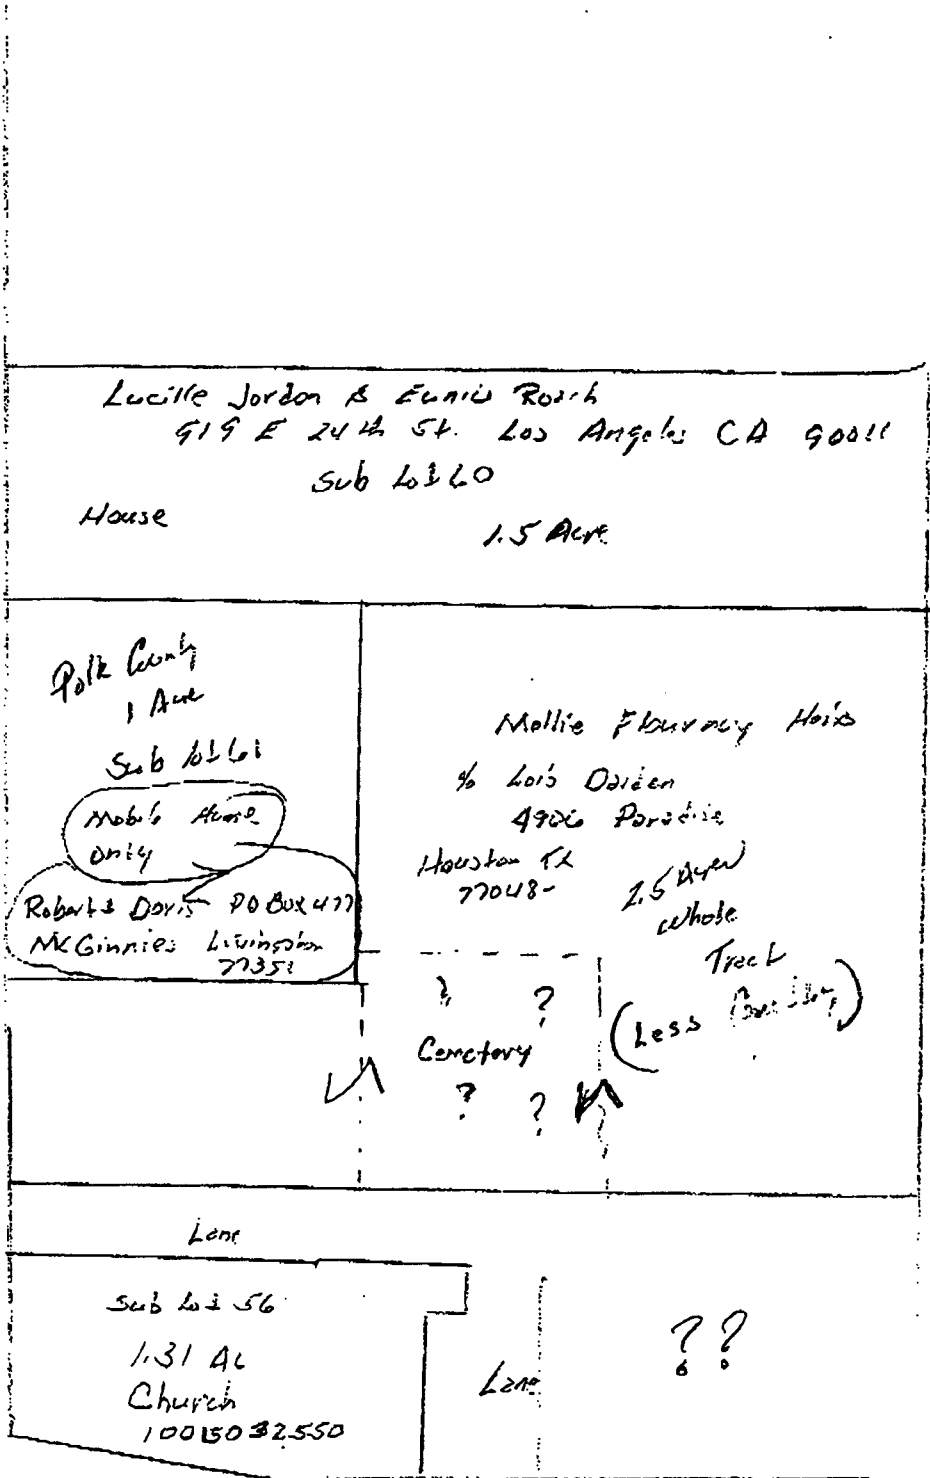 Lucille Jordon & Eunis Roach
919 E 24th St. Los Angeles CA 90011
Sub Lot 60
House
1.5 Acre
Polk County
1 Acre
Sub Lot 61
Mobile Home
Only
Robert & Doris PO Box 477
McGinnies Livingston
77351
Mollie Flournoy Heirs
% Lois Darden
4906 Paradise
Houston TX
77048-
2.5 Acres
Whole
Tract
(Less Cemetery)
? ?
Cemetery
? ?
Lane
Sub Lot 56
1.31 Ac
Church
Lane
??